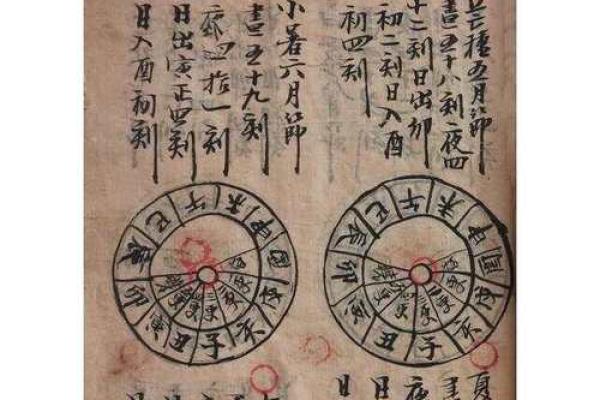 芒種五月節
晝五十八刻夜四
十二刻日出卯
初二刻日入酉
初四刻
小暑六月節
晝五十九刻
夜四拾一刻
日出寅正四刻
日入酉初刻
子
丑
卯
辰
巳
午
未
申
戌
亥
二更
三更
子
丑
寅
卯
辰
巳
午
未
申
戌
亥
二更
三更
夏
晝
夜
日
日